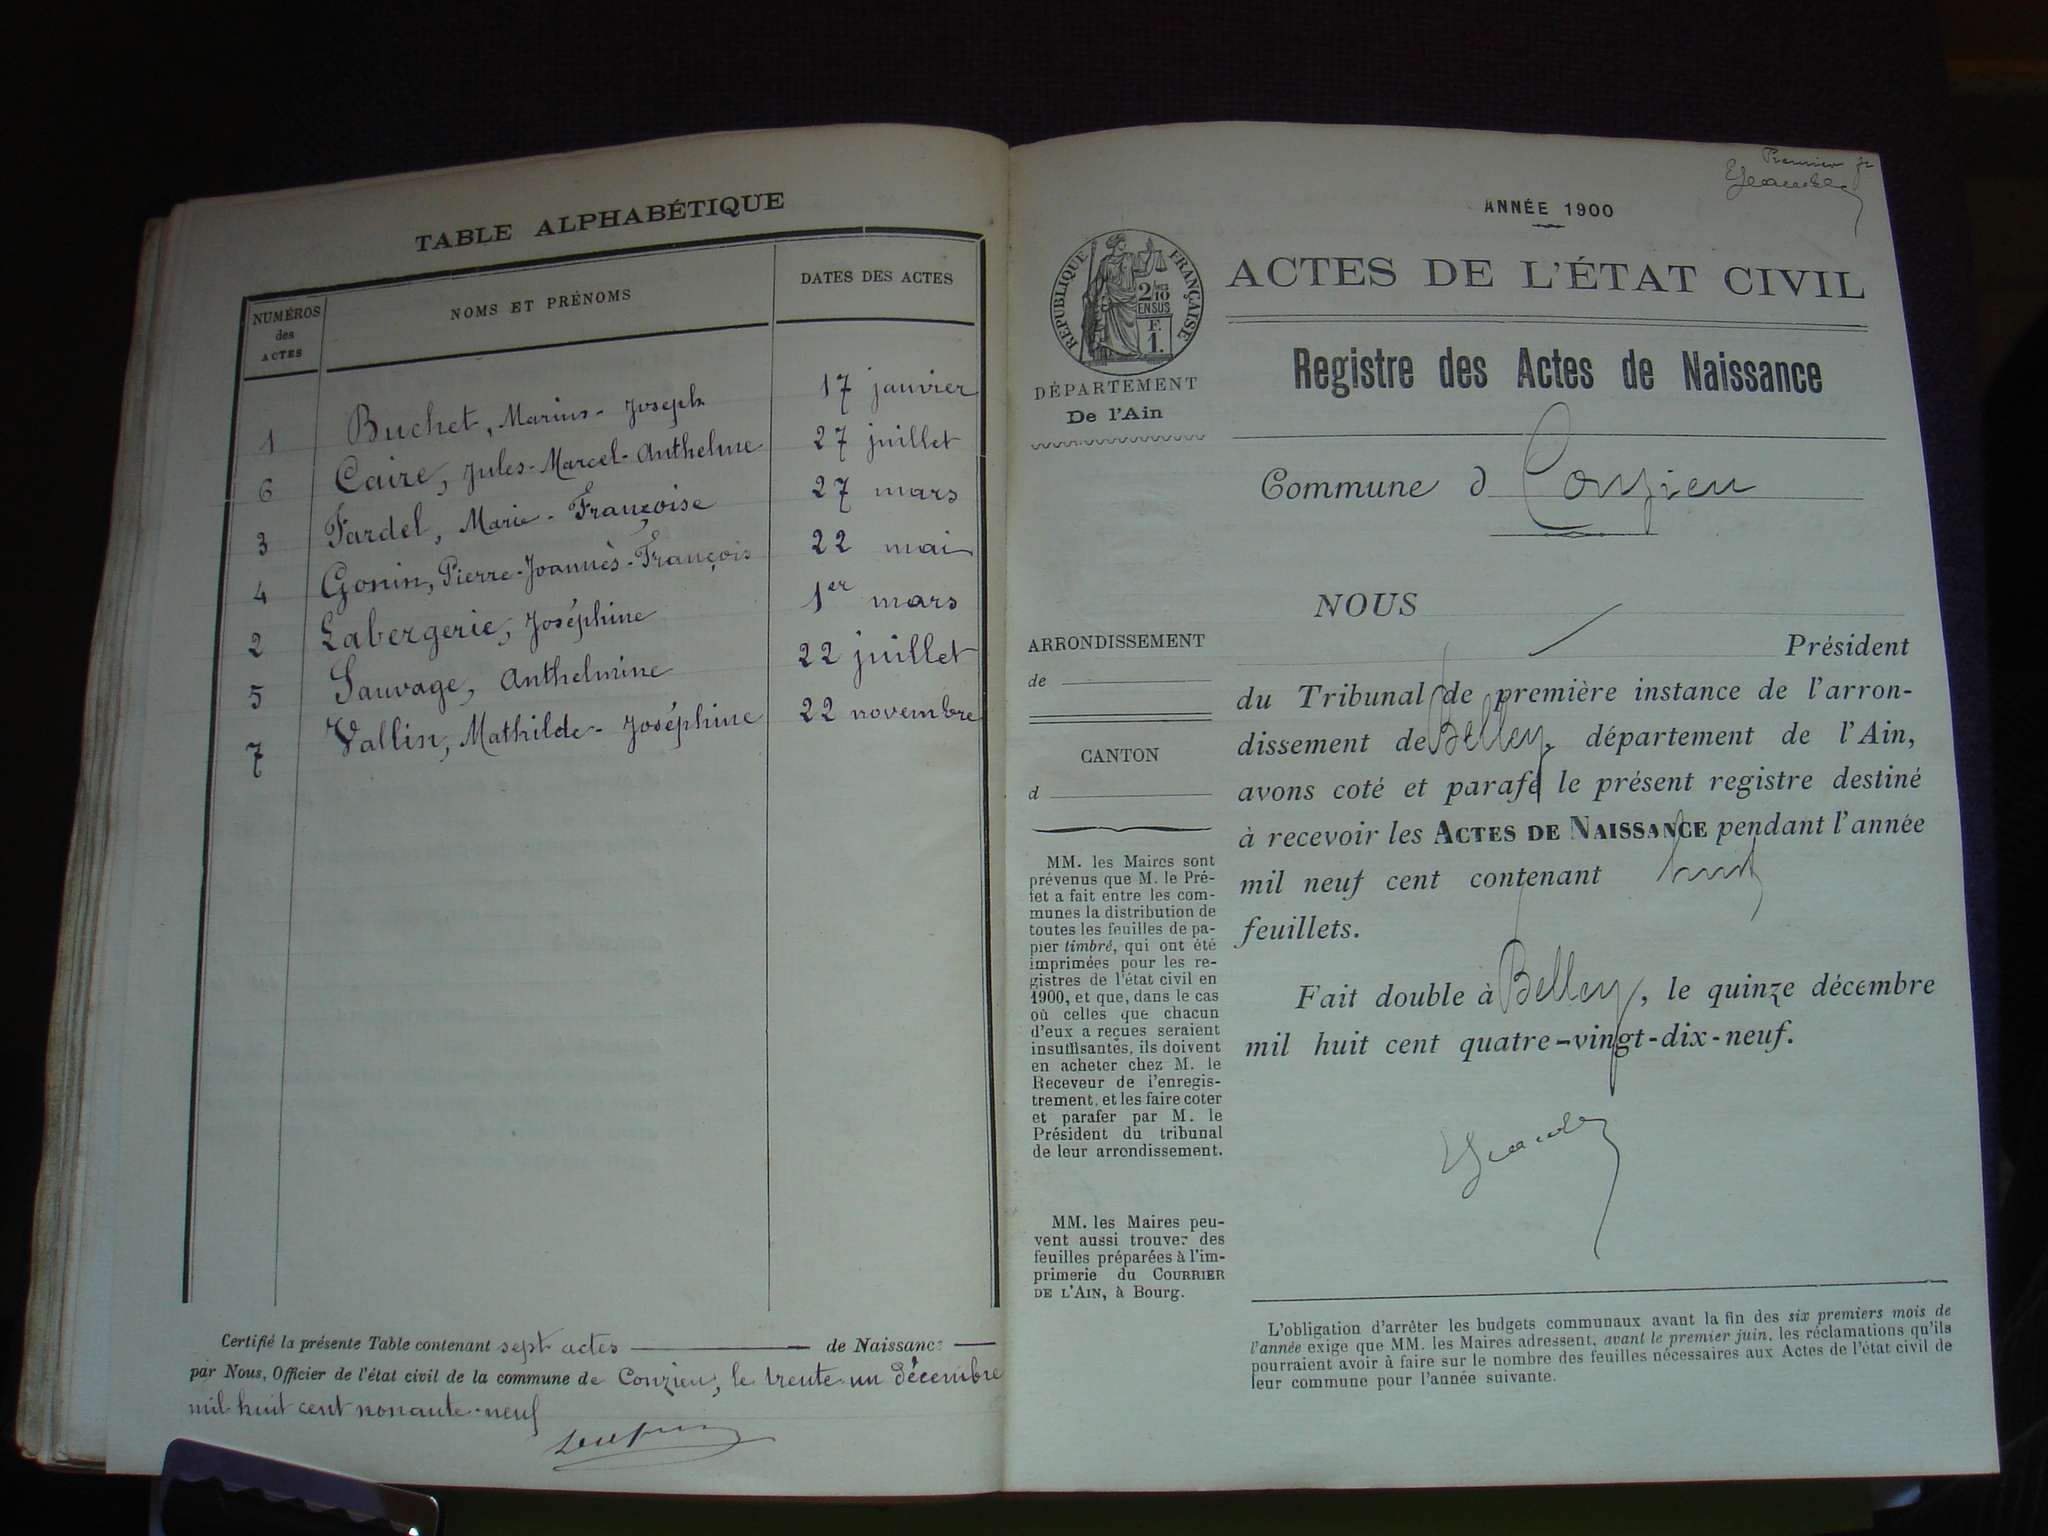 TABLE ALPHABÉTIQUE
NUMÉROS
des
ACTES
NOMS ET PRÉNOMS
DATES DES ACTES
1 Buchet, Marius-Joseph 17 janvier
6 Caire, Jules-Marcel-Anthelme 27 juillet
3 Fardel, Marie-Françoise 27 mars
4 Gonin, Pierre-Joannès-François 22 mai
2 Labergerie, Joséphine 1er mars
5 Sauvage, Anthelmine 22 juillet
7 Vallin, Mathilde-Joséphine 22 novembre
Certifié la présente Table contenant sept actes de Naissance
par Nous, Officier de l'état civil de la commune de Conzieu, le trente un décembre
mil huit cent nonante-neuf
Premier
ANNÉE 1900
RÉPUBLIQUE FRANÇAISE
2/10
EN SUS
F.
1.
DÉPARTEMENT
De l'Ain
ACTES DE L'ÉTAT CIVIL
Registre des Actes de Naissance
Commune d Conzieu
ARRONDISSEMENT
de
CANTON
d
MM. les Maires sont
prévenus que M. le Pré-
fet a fait entre les com-
munes la distribution de
toutes les feuilles de pa-
pier timbré, qui ont été
imprimées pour les re-
gistres de l'état civil en
1900, et que, dans le cas
où celles que chacun
d'eux a reçues seraient
insuffisantes, ils doivent
en acheter chez M. le
Receveur de l'enregis-
trement, et les faire coter
et parafer par M. le
Président du tribunal
de leur arrondissement.
MM. les Maires peu-
vent aussi trouver des
feuilles préparées à l'im-
primerie du COURRIER
DE L'AIN, à Bourg.
NOUS
Président
du Tribunal de première instance de l'arron-
dissement de Belley, département de l'Ain,
avons coté et parafé le présent registre destiné
à recevoir les ACTES DE NAISSANCE pendant l'année
mil neuf cent contenant huit
feuillets.
Fait double à Belley, le quinze décembre
mil huit cent quatre-vingt-dix-neuf.
L'obligation d'arrêter les budgets communaux avant la fin des six premiers mois de
l'année exige que MM. les Maires adressent, avant le premier juin, les réclamations qu'ils
pourraient avoir à faire sur le nombre des feuilles nécessaires aux Actes de l'état civil de
leur commune pour l'année suivante.